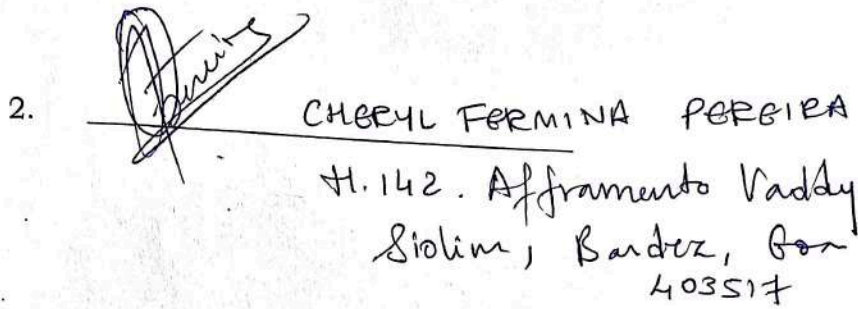 2. Pereira
CHERYL FERMINA PEREIRA
H.142. Afframento Vaddy
Siolim, Bardez, Goa
403517